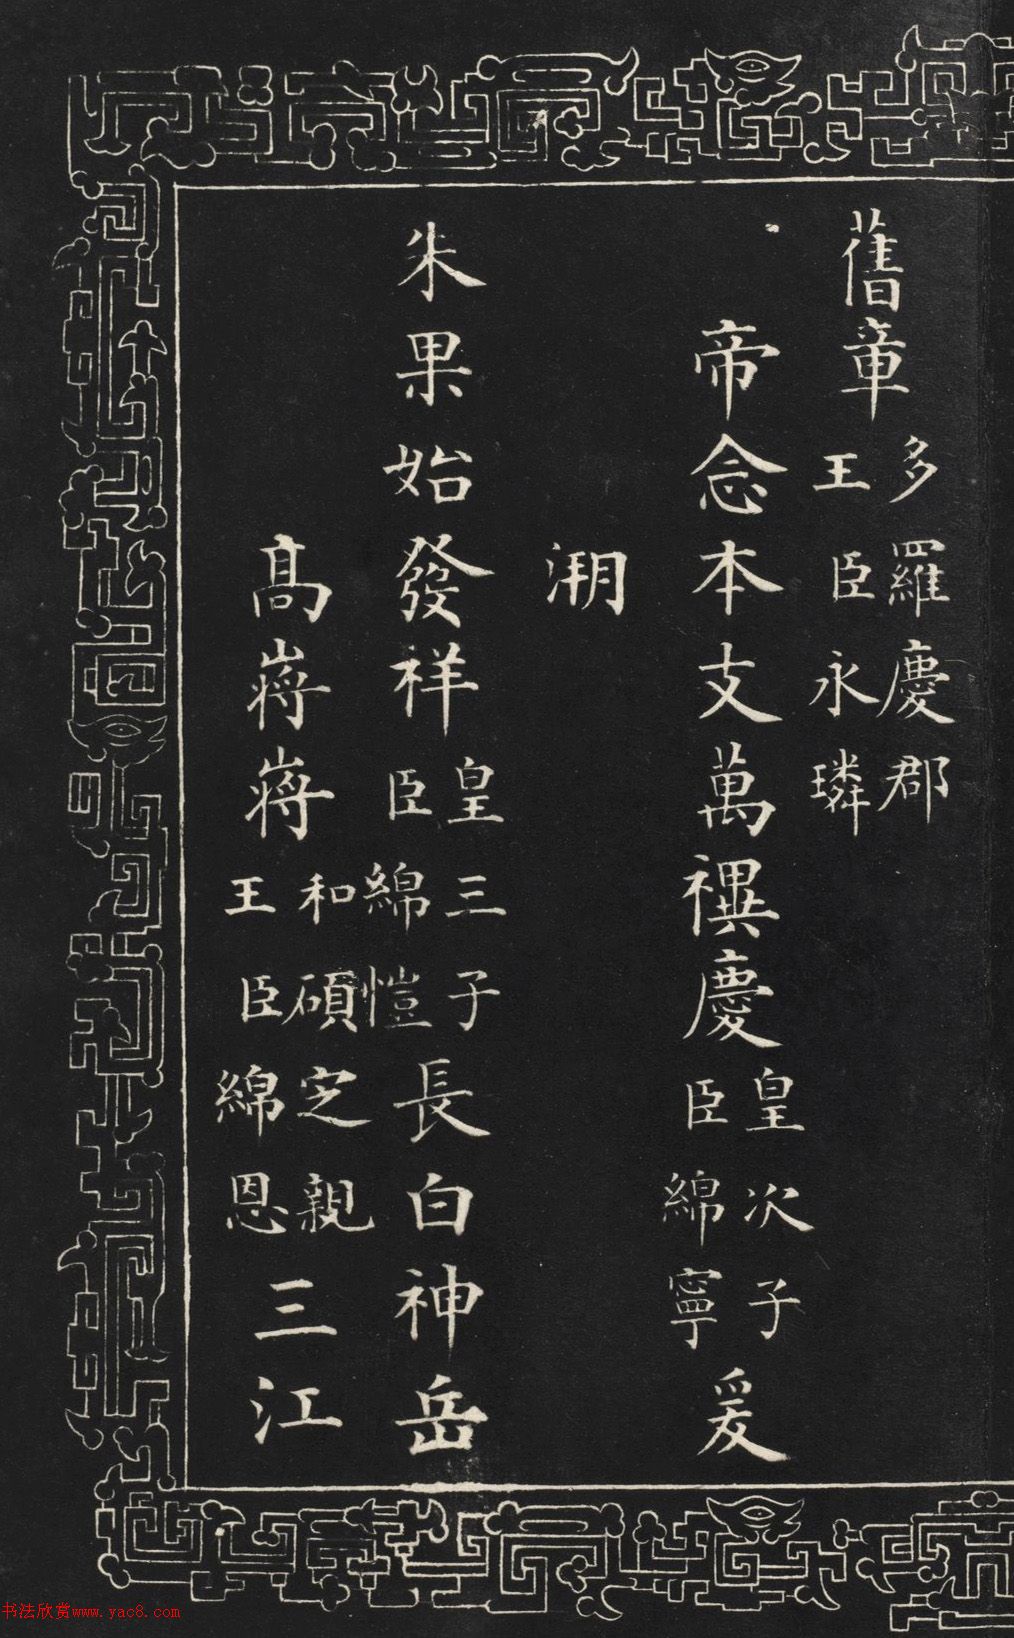 舊章多羅慶郡王臣永璘
帝念本支萬禩慶皇次子臣綿寧爰
溯
朱果始發祥皇三子臣綿愷長白神岳
高蔣蔣和碩定親王臣綿恩三江
书法欣赏www.yac8.com